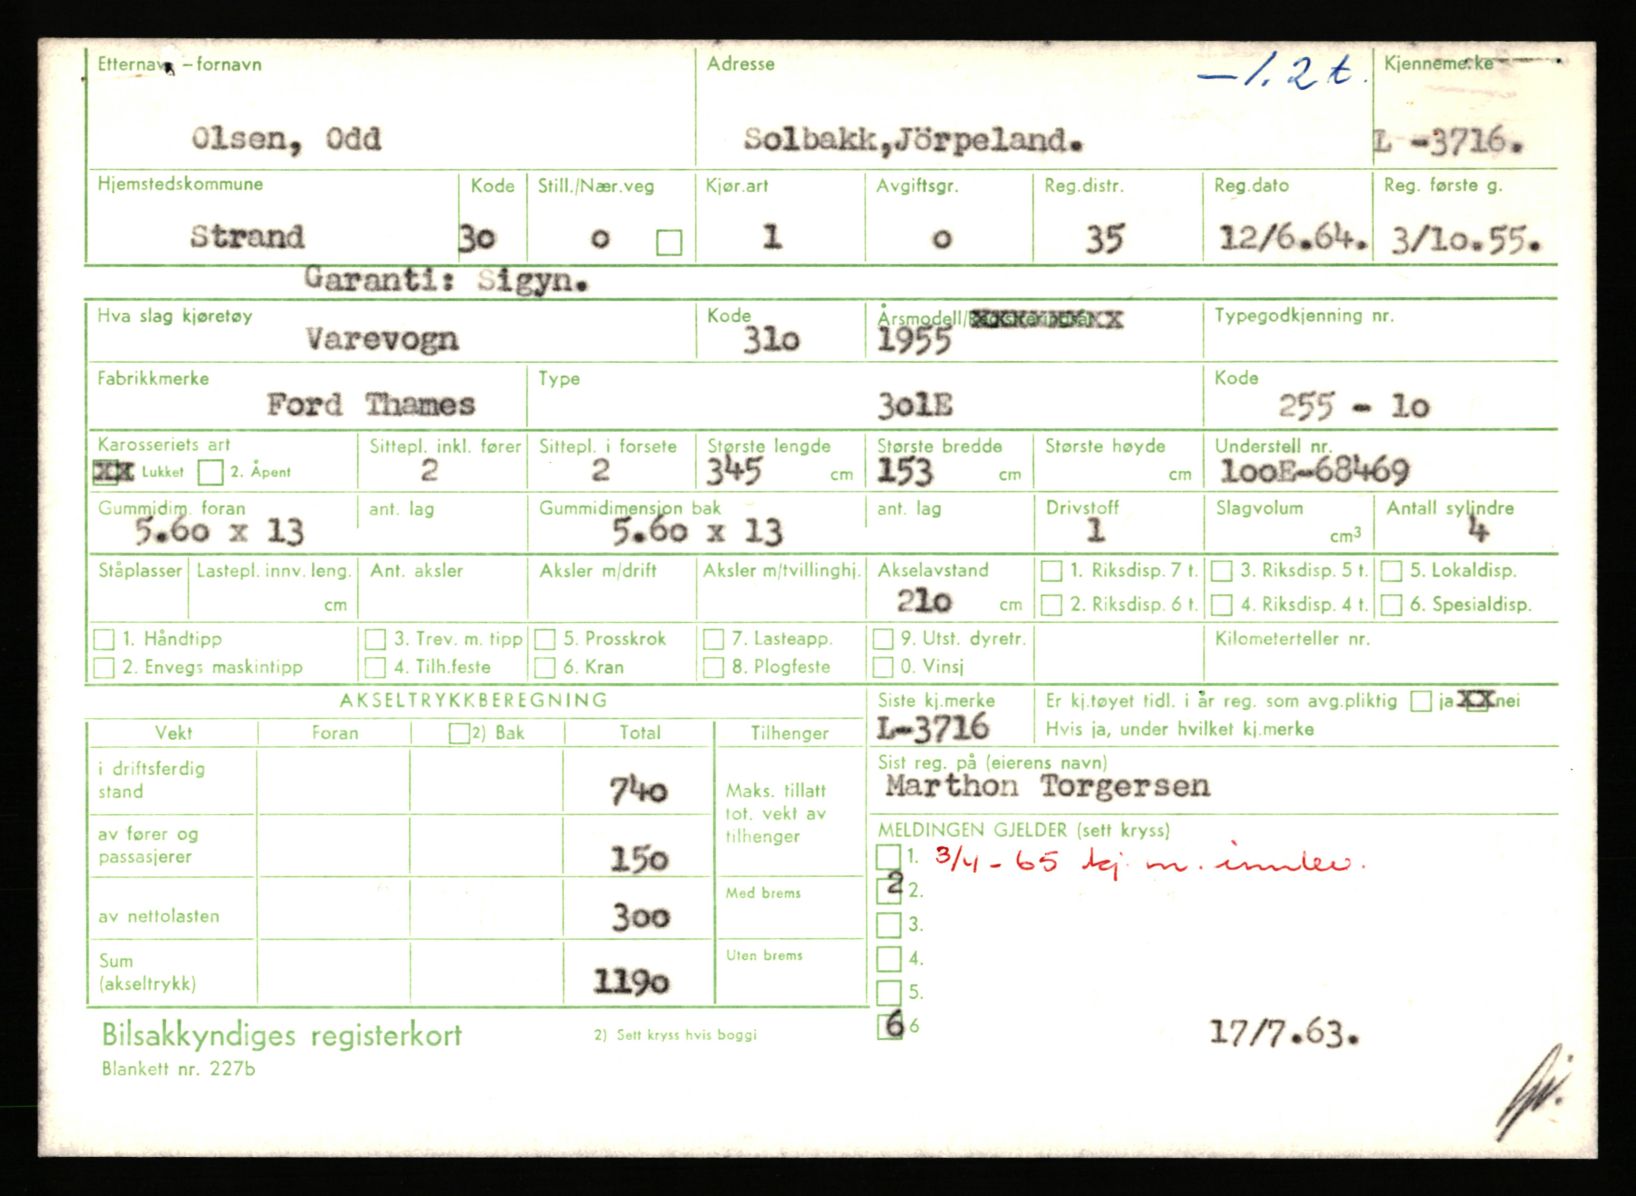 Etternavn – fornavn Adresse – 1.2 t. Kjennemerke
Olsen, Odd Solbakk,Jörpeland. L -3716.
Hjemstedskommune Kode Still./Nær.veg Kjør.art Avgiftsgr. Reg.distr. Reg.dato Reg. første g.
Strand 30 o 1 o 35 12/6.64. 3/10.55.
Garanti: Sigyn.
Hva slag kjøretøy Kode Årsmodell/ XXXXXXXX Typegodkjenning nr.
Varevogn 310 1955
Fabrikkmerke Type Kode
Ford Thames 301E 255 - 10
Karosseriets art Sittepl. inkl. fører Sittepl. i forsete Største lengde Største bredde Største høyde Understell nr.
XX Lukket 2. Åpent 2 2 345 cm 153 cm cm 100E-68469
Gummidim. foran ant. lag Gummidimensjon bak ant. lag Drivstoff Slagvolum Antall sylindre
5.60 x 13 5.60 x 13 1 cm3 4
Ståplasser Lastepl. innv. leng. Ant. aksler Aksler m/drift Aksler m/tvillinghj. Akselavstand 1. Riksdisp. 7 t. 3. Riksdisp. 5 t. 5. Lokaldisp.
cm 210 cm 2. Riksdisp. 6 t. 4. Riksdisp. 4 t. 6. Spesialdisp.
1. Håndtipp 3. Trev. m. tipp 5. Prosskrok 7. Lasteapp. 9. Utst. dyretr. Kilometerteller nr.
2. Envegs maskintipp 4. Tilh.feste 6. Kran 8. Plogfeste 0. Vinsj
AKSELTRYKKBEREGNING Siste kj.merke Er kj.tøyet tidl. i år reg. som avg.pliktig ja XX nei
Vekt Foran 2) Bak Total Tilhenger L-3716 Hvis ja, under hvilket kj.merke
i driftsferdig stand 740 Maks. tillatt tot. vekt av tilhenger Sist reg. på (eierens navn)
Marthon Torgersen
av fører og passasjerer 150 MELDINGEN GJELDER (sett kryss)
1. 3/4 - 65 kj. m. innlev.
Med brems 2 2.
av nettolasten 300 3.
Uten brems 4.
Sum (akseltrykk) 1190 5.
Bilsakkyndiges registerkort 2) Sett kryss hvis boggi 6 6 17/7.63.
Blankett nr. 227b